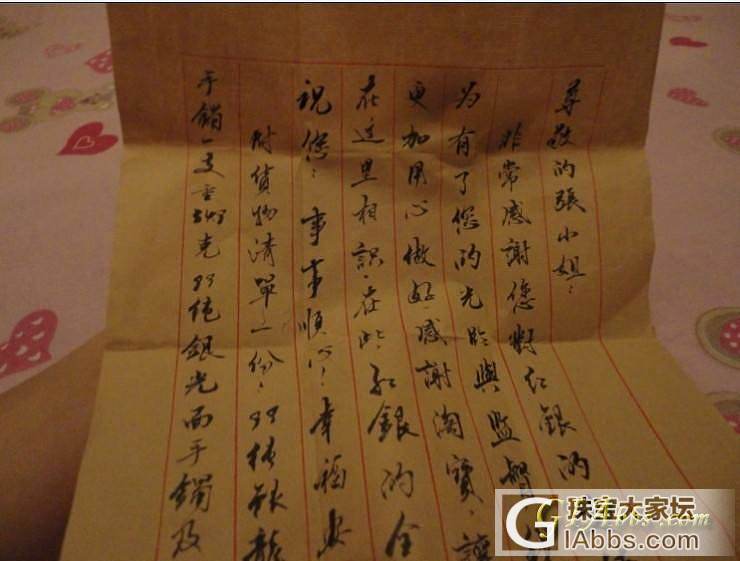 尊敬的張小姐：
非常感謝您對红銀的
为有了您的光臨與监督
更加用心做好.感謝淘寶.讓
在这里相識.在此.红銀的全
祝您：事事順心！幸福安
附貨物清單一份：99纯银龍
手鐲一支重 克99纯銀光面手鐲及
珠宝大家坛
GIAbbs.com